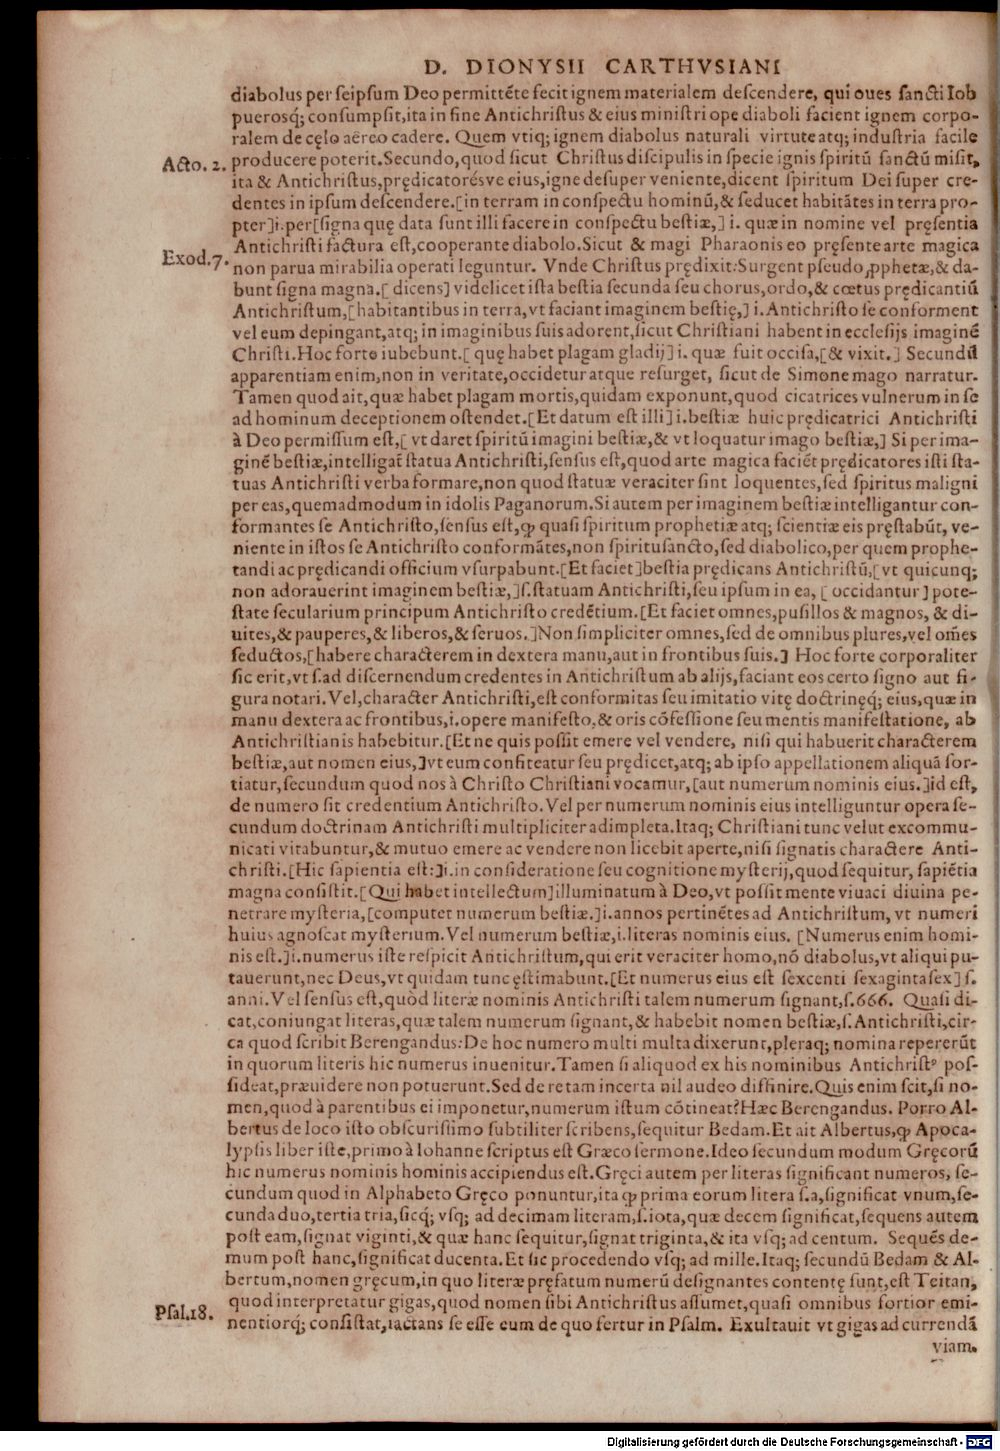 D. DIONYSII CARTHVSIANI
diabolus per seipsum Deo permittẽte fecit ignem materialem descendere, qui oues sancti Iob
puerosq́; consumpsit, ita in fine Antichristus & eius ministri ope diaboli facient ignem corpo-
ralem de cęlo aëreo cadere. Quem vtiq; ignem diabolus naturali virtute atq; industria facile
Acto. 2. producere poterit. Secundo, quod sicut Christus discipulis in specie ignis spiritũ sanctũ misit,
ita & Antichristus, prędicatorésve eius, igne desuper veniente, dicent spiritum Dei super cre-
dentes in ipsum descendere. [in terram in conspectu hominũ, & seducet habitãtes in terra pro-
pter] i. per [signa quę data sunt illi facere in conspectu bestiæ,] i. quæ in nomine vel pręsentia
Antichristi factura est, cooperante diabolo. Sicut & magi Pharaonis eo pręsente arte magica
Exod. 7. non parua mirabilia operati leguntur. Vnde Christus prędixit: Surgent pseudo ꝓphetæ, & da-
bunt signa magna. [ dicens] videlicet ista bestia secunda seu chorus, ordo, & cœtus prędicantiũ
Antichristum, [habitantibus in terra, vt faciant imaginem bestię,] i. Antichristo se conforment
vel eum depingant, atq; in imaginibus suis adorent, sicut Christiani habent in ecclesijs imaginẽ
Christi. Hoc forte iubebunt. [ quę habet plagam gladij] i. quæ fuit occisa, [& vixit.] Secundũ
apparentiam enim, non in veritate, occidetur atque resurget, sicut de Simone mago narratur.
Tamen quod ait, quæ habet plagam mortis, quidam exponunt, quod cicatrices vulnerum in se
ad hominum deceptionem ostendet. [Et datum est illi] i. bestiæ huic prędicatrici Antichristi
à Deo permissum est, [ vt daret spiritũ imagini bestiæ, & vt loquatur imago bestiæ,] Si per ima-
ginẽ bestiæ, intelligat̃ statua Antichristi, sensus est, quod arte magica faciẽt prędicatores isti sta-
tuas Antichristi verba formare, non quod statuæ veraciter sint loquentes, sed spiritus maligni
per eas, quemadmodum in idolis Paganorum. Si autem per imaginem bestiæ intelligantur con-
formantes se Antichristo, sensus est, ꝙ quasi spiritum prophetiæ atq; scientiæ eis pręstabũt, ve-
niente in istos se Antichristo conformãtes, non spiritusancto, sed diabolico, per quem prophe-
tandi ac prędicandi officium vsurpabunt. [Et faciet] bestia prędicans Antichristũ, [ vt quicunq;
non adorauerint imaginem bestiæ,] s. statuam Antichristi, seu ipsum in ea, [ occidantur] pote-
state secularium principum Antichristo credẽtium. [Et faciet omnes, pusillos & magnos, & di-
uites, & pauperes, & liberos, & seruos.] Non simpliciter omnes, sed de omnibus plures, vel om̃es
seductos, [habere characterem in dextera manu, aut in frontibus suis.] Hoc forte corporaliter
sic erit, vt s. ad discernendum credentes in Antichristum ab alijs, faciant eos certo signo aut fi-
gura notari. Vel, character Antichristi, est conformitas seu imitatio vitę doctrinęq́; eius, quæ in
manu dextera ac frontibus, i. opere manifesto, & oris cõfessione seu mentis manifestatione, ab
Antichristianis habebitur. [Et ne quis possit emere vel vendere, nisi qui habuerit characterem
bestiæ, aut nomen eius,] vt eum confiteatur seu prędicet, atq; ab ipso appellationem aliquã sor-
tiatur, secundum quod nos à Christo Christiani vocamur, [aut numerum nominis eius.] id est,
de numero sit credentium Antichristo. Vel per numerum nominis eius intelliguntur opera se-
cundum doctrinam Antichristi multipliciter adimpleta. Itaq; Christiani tunc velut excommu-
nicati vitabuntur, & mutuo emere ac vendere non licebit aperte, nisi signatis charactere Anti-
christi. [Hic sapientia est:] i. in consideratione seu cognitione mysterij, quod sequitur, sapiẽtia
magna consistit. [Qui habet intellectum] illuminatum à Deo, vt possit mente viuaci diuina pe-
netrare mysteria, [computet numerum bestiæ.] i. annos pertinẽtes ad Antichristum, vt numeri
huius agnoscat mysterium. Vel numerum bestiæ, i. literas nominis eius. [Numerus enim homi-
nis est.] i. numerus iste respicit Antichristum, qui erit veraciter homo, nõ diabolus, vt aliqui pu-
tauerunt, nec Deus, vt quidam tunc ęstimabunt. [Et numerus eius est sexcenti sexagintasex] s.
anni. Vel sensus est, quòd literæ nominis Antichristi talem numerum signant, s. 666. Quasi di-
cat, coniungat literas, quæ talem numerum signant, & habebit nomen bestiæ, s. Antichristi, cir-
ca quod scribit Berengandus: De hoc numero multi multa dixerunt, pleraq; nomina repererũt
in quorum literis hic numerus inuenitur. Tamen si aliquod ex his nominibus Antichristꝰ pos-
sideat, præuidere non potuerunt. Sed de re tam incerta nil audeo diffinire. Quis enim scit, si no-
men, quod à parentibus ei imponetur, numerum istum cõtineat? Hæc Berengandus. Porro Al-
bertus de loco isto obscurissimo subtiliter scribens, sequitur Bedam. Et ait Albertus, ꝙ Apoca-
lypsis liber iste, primo à Iohanne scriptus est Græco sermone. Ideo secundum modum Gręcorũ
hic numerus nominis hominis accipiendus est. Gręci autem per literas significant numeros, se-
cundum quod in Alphabeto Gręco ponuntur, ita ꝙ prima eorum litera s. a, significat vnum, se-
cunda duo, tertia tria, sicq́; vsq; ad decimam literam, s. iota, quæ decem significat, sequens autem
post eam, signat viginti, & quæ hanc sequitur, signat triginta, & ita vsq; ad centum. Sequẽs de-
mum post hanc, significat ducenta. Et sic procedendo vsq; ad mille. Itaq; secundũ Bedam & Al-
bertum, nomen gręcum, in quo literæ pręfatum numerũ designantes contentę sunt, est Teitan,
quod interpretatur gigas, quod nomen sibi Antichristus assumet, quasi omnibus fortior emi-
Psal. 18. nentiorq́; consistat, iactans se esse eum de quo fertur in Psalm. Exultauit vt gigas ad currendã
viam.
Digitalisierung gefördert durch die Deutsche Forschungsgemeinschaft - DFG